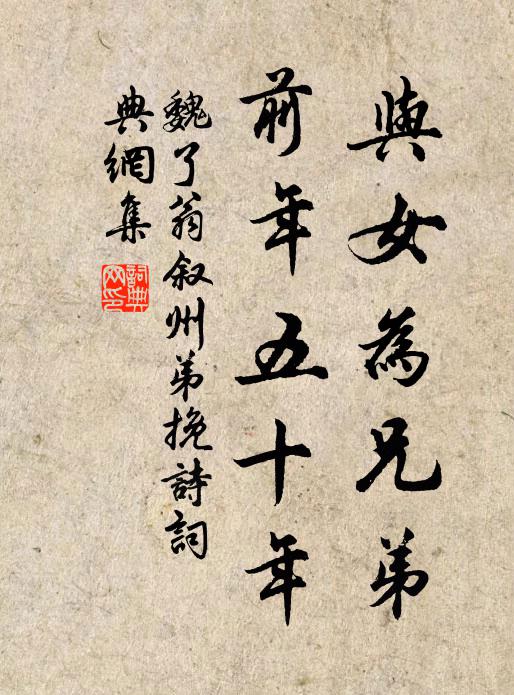 與女為兄弟
前年五十年
魏了翁叙州弟挽詩詞
典網集
詞典網印